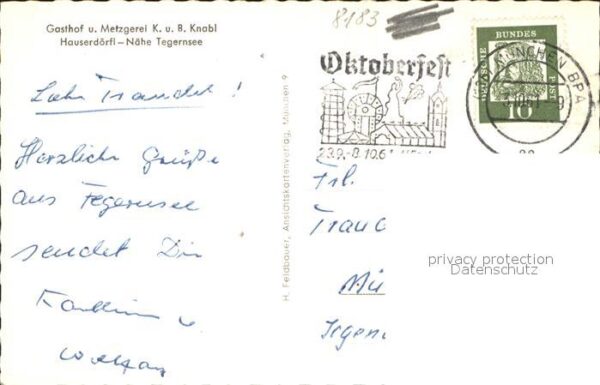 Gasthof u. Metzgerei K. u. B. Knabl
Hauserdörfl – Nähe Tegernsee
8183
Liebe Traudel!
Herzliche Grüße
aus Tegernsee
sendet Dir
u.
H. Feldbauer, Ansichtskartenverlag, München 9
Oktoberfest
23.9.-8.10.61
DEUTSCHE BUNDES POST
10
MÜNCHEN BPA
Frl.
Traud
Mü
privacy protection
Datenschutz